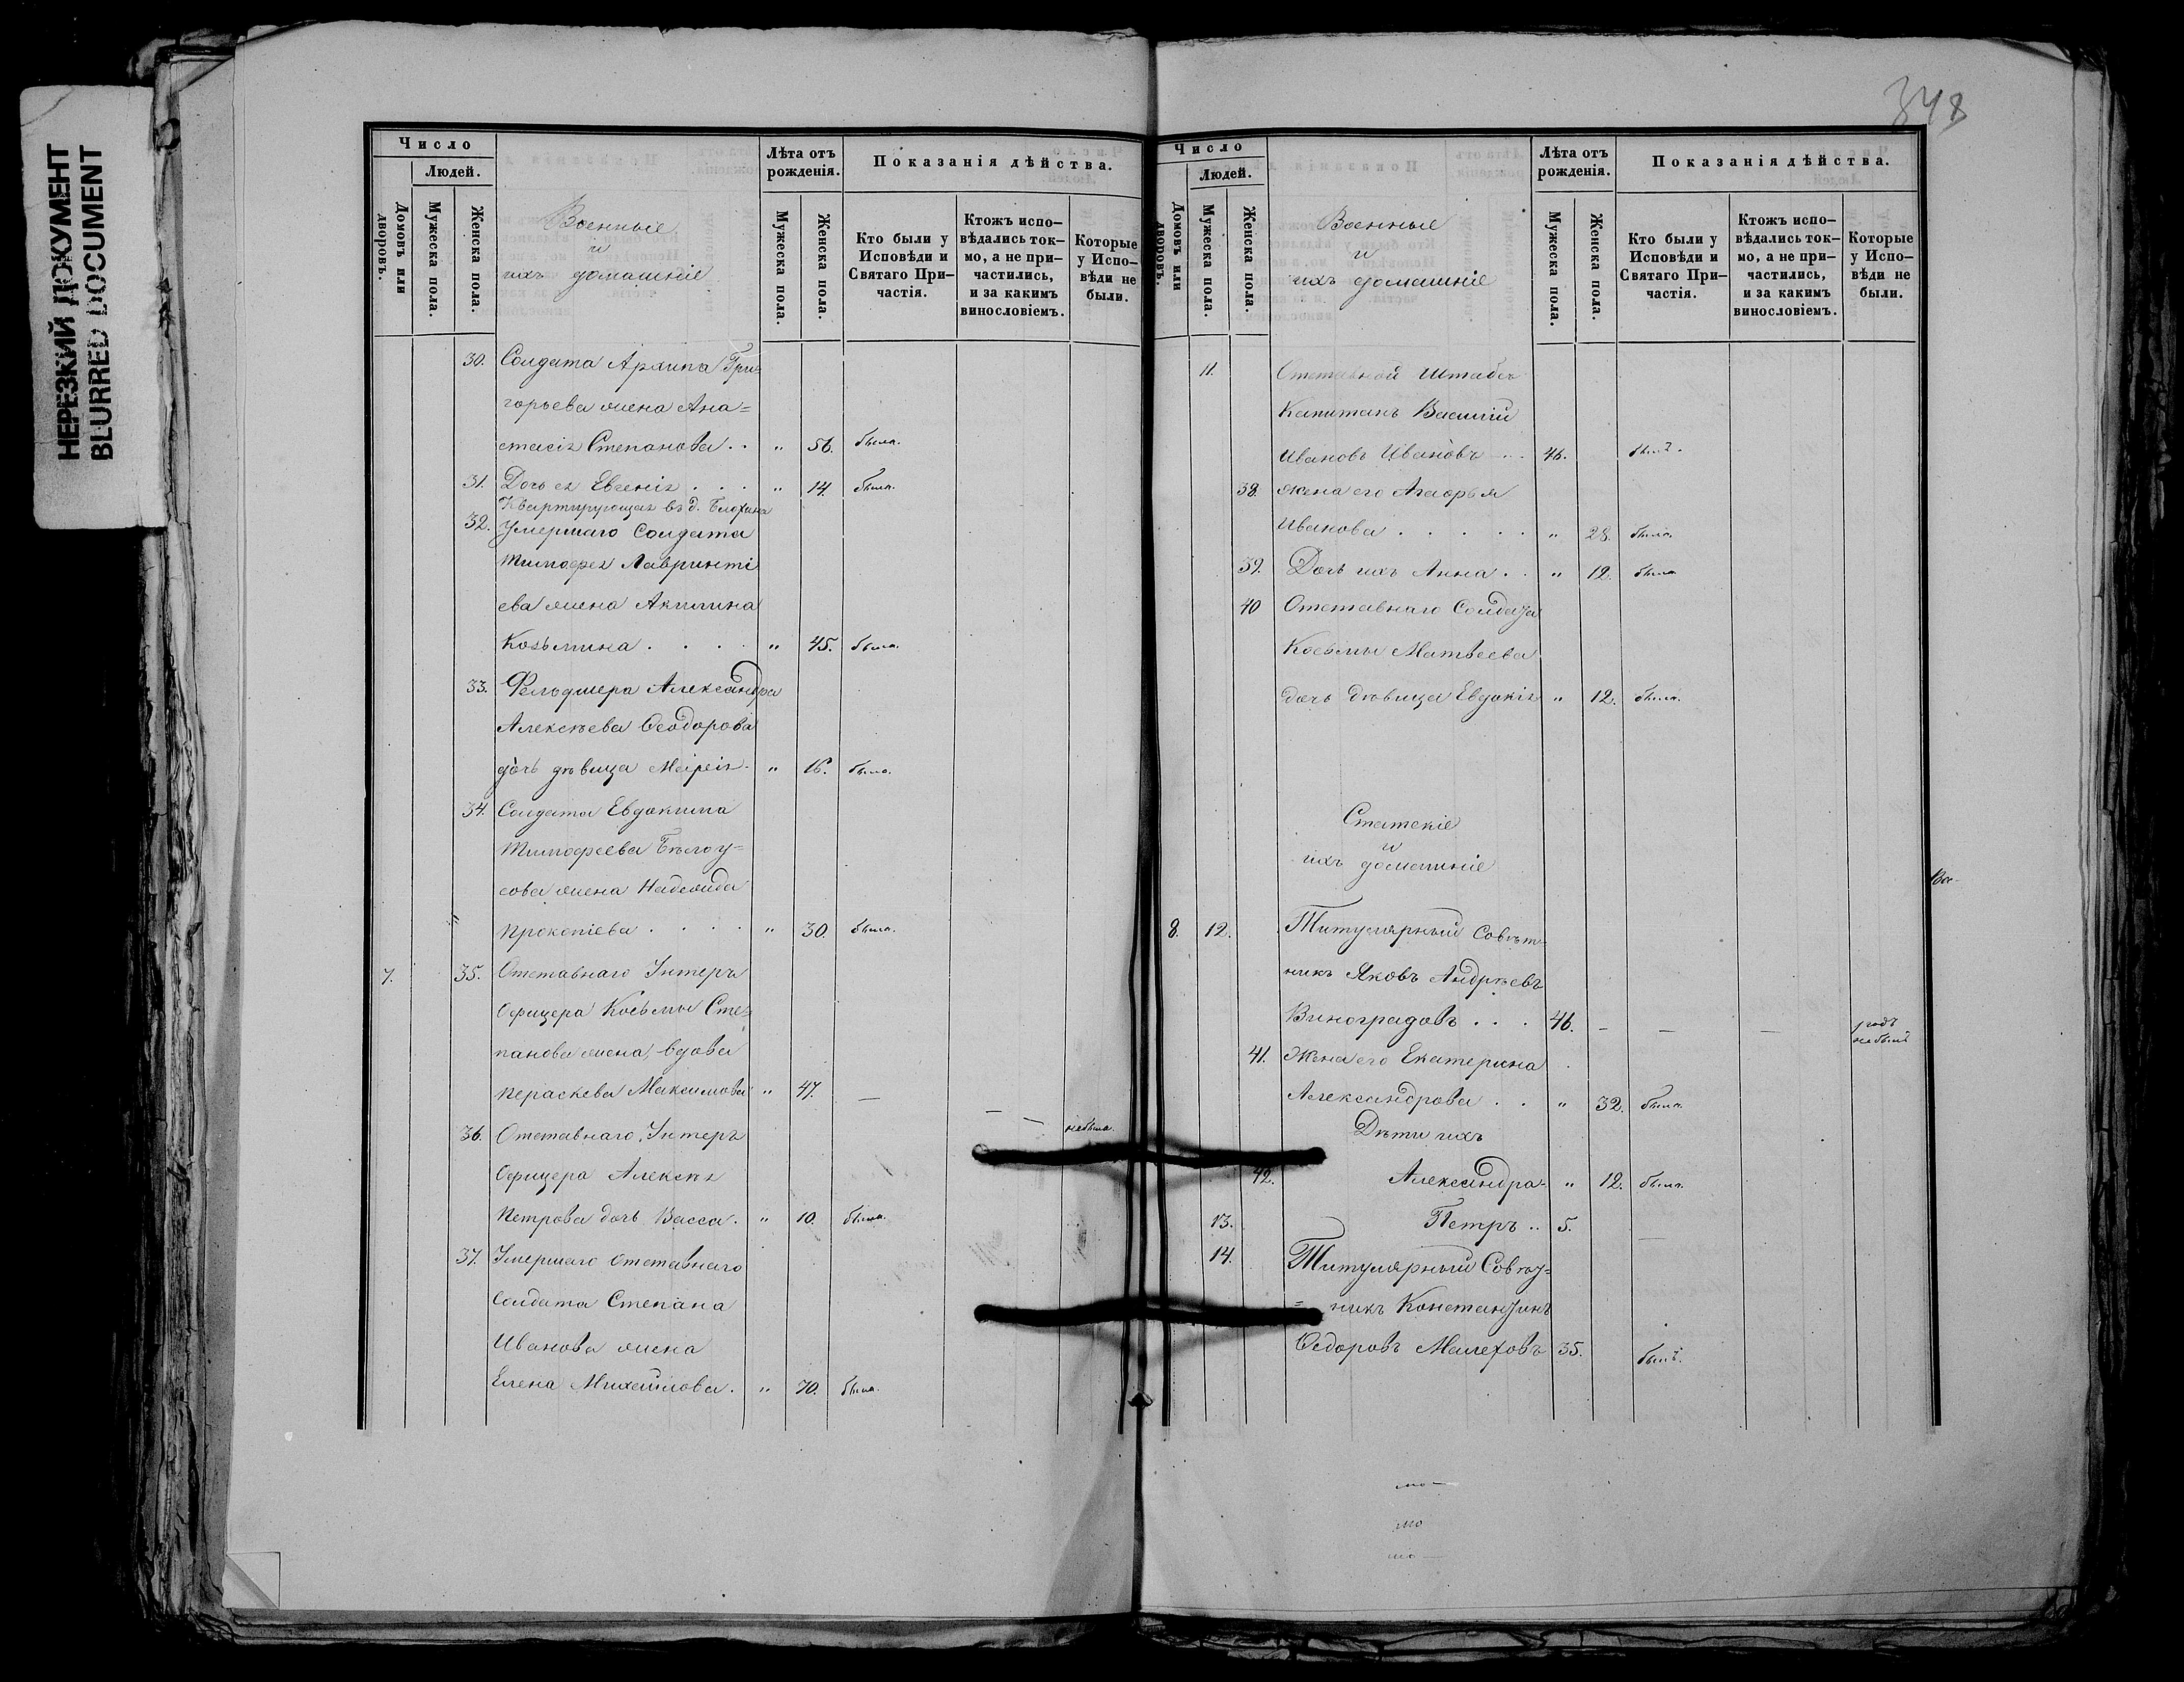 НЕРЕЗКИЙ ДОКУМЕНТ
BLURRED DOCUMENT
Число
Людей.
Домовъ или дворовъ.
Мужеска пола.
Женска пола.
Военные
и
ихъ домашніе
Лѣта отъ рожденія.
Мужеска пола.
Женска пола.
Показанія дѣйства.
Кто были у Исповѣди и Святаго При-
частія.
Ктожъ испо-
вѣдались ток-
мо, а не при-
частились,
и за какимъ
винословіемъ.
Которые
у Испо-
вѣди не
были.
30. Солдата Архипа Гри-
горьева жена Ана=
стасія Степанова . . " 56. была.
31. Дочь ея Евгенія . . . " 14. была.
Квартирующая въ д. Блохина
32. Умершаго Солдата
Тимофея Лаврентi
ева жена Акилина
Козьмина . . . . " 45. была.
33. Фельдшера Александра
Алексѣева Ѳеодорова
дочь дѣвица Марія. " 16. была.
34. Солдата Евдокима
Тимофеева Бѣлоу=
сова жена Надежда
Прокопіева . . . . " 30. была.
7. 35. Отставнаго Унтеръ
Офицера Козьмы Сте=
панова жена, вдова
Пераскева Максимова " 47. — — — небыла.
36. Отставнаго Унтеръ
Офицера Алексѣя
Петрова дочь Васса. " 10. была.
37. Умершаго отставнаго
Солдата Степана
Иванова жена
Елена Михайлова. " 70. была.
348
Число
Людей.
Домовъ или дворовъ.
Мужеска пола.
Женска пола.
Военные
и
ихъ домашніе
Лѣта отъ рожденія.
Мужеска пола.
Женска пола.
Показанія дѣйства.
Кто были у
Исповѣди и
Святаго При-
частія.
Ктожъ испо-
вѣдались ток-
мо, а не при-
частились,
и за какимъ
винословіемъ.
Которые
у Испо-
вѣди не
были.
11. Отставной Штабсъ
Капитанъ Василій
Ивановъ Ивановъ . . 46. былъ.
38. жена его
Иванова . . . . . " 28. была.
39. Дочь ихъ Анна . . " 12. была
40 Отставнаго Солдата
Козьмы Матвеева
дочь дѣвица Евдокія " 12. была.
Статскіе
и
ихъ домашніе
8. 12. Титулярный Совѣт-
никъ Яковъ Андреевъ
Виноградовъ . . . 46. — — — 1 годъ
небылъ
41. Жена его Екатерина
Александрова . . " 32. была.
Дѣти ихъ
42. Александра- " 12. была.
13. Петръ .. 5. —
14. Титулярный Совѣт=
= никъ Константинъ
Ѳедоровъ Малеховъ 35. былъ.